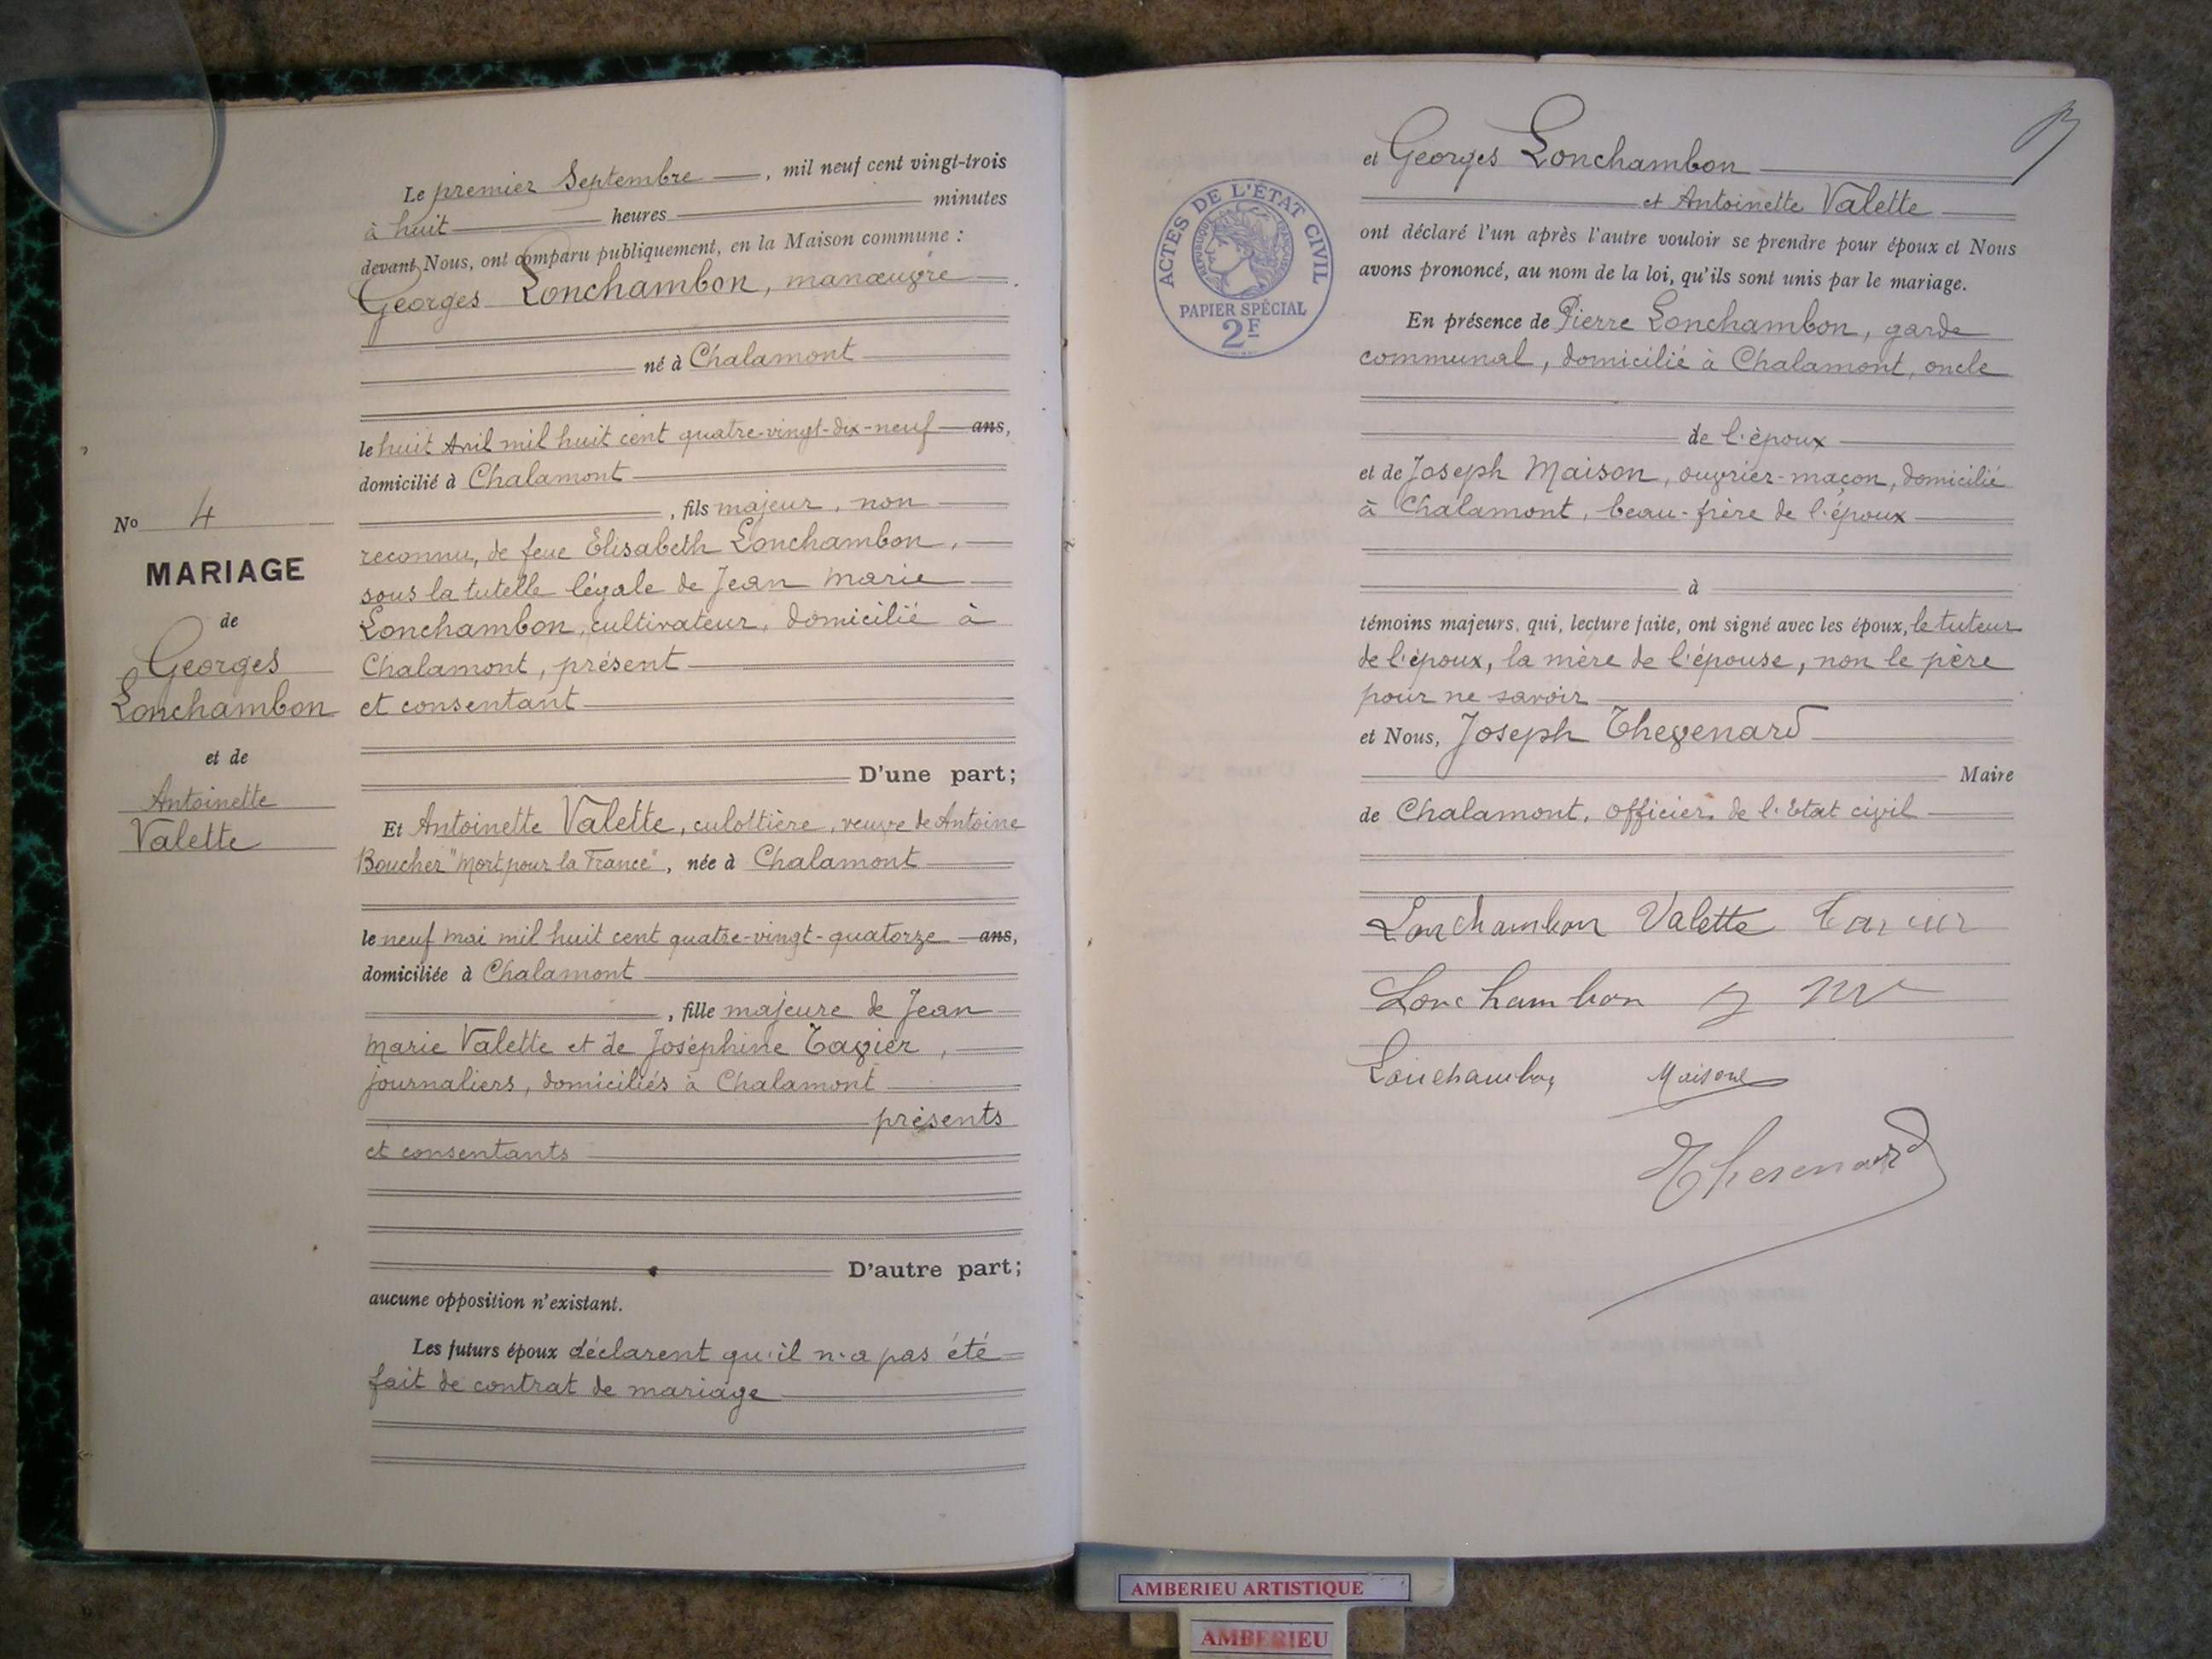 Le premier Septembre, mil neuf cent vingt-trois
à huit heures minutes
devant Nous, ont comparu publiquement, en la Maison commune :
Georges Lonchambon, manœuvre
né à Chalamont
le huit Avril mil huit cent quatre-vingt-dix-neuf ans,
domicilié à Chalamont
, fils majeur, non
reconnu, de feue Elisabeth Lonchambon,
sous la tutelle légale de Jean Marie
Lonchambon, cultivateur, domicilié à
Chalamont, présent
et consentant
D'une part;
No 4
MARIAGE
de
Georges
Lonchambon
et de
Antoinette
Valette
Et Antoinette Valette, culottière, veuve de Antoine
Boucher "Mort pour la France", née à Chalamont
le neuf mai mil huit cent quatre-vingt-quatorze ans,
domiciliée à Chalamont
, fille majeure de Jean
Marie Valette et de Joséphine Tavier,
journaliers, domiciliés à Chalamont
présents
et consentants
D'autre part;
aucune opposition n'existant.
Les futurs époux déclarent qu'il n'a pas été
fait de contrat de mariage
et Georges Lonchambon
et Antoinette Valette
ont déclaré l'un après l'autre vouloir se prendre pour époux et Nous
avons prononcé, au nom de la loi, qu'ils sont unis par le mariage.
En présence de Pierre Lonchambon, garde
communal, domicilié à Chalamont, oncle
de l'époux
et de Joseph Maison, ouvrier-maçon, domicilié
à Chalamont, beau-frère de l'époux
à
témoins majeurs, qui, lecture faite, ont signé avec les époux, le tuteur
de l'époux, la mère de l'épouse, non le père
pour ne savoir
et Nous, Joseph Thevenard
Maire
de Chalamont, officier de l'Etat civil
Lonchambon Valette
Lonchambon
Lonchambon Maison
Thevenard
ACTES DE L'ÉTAT CIVIL
RÉPUBLIQUE FRANÇAISE
PAPIER SPÉCIAL
2F
AMBERIEU ARTISTIQUE
AMBERIEU